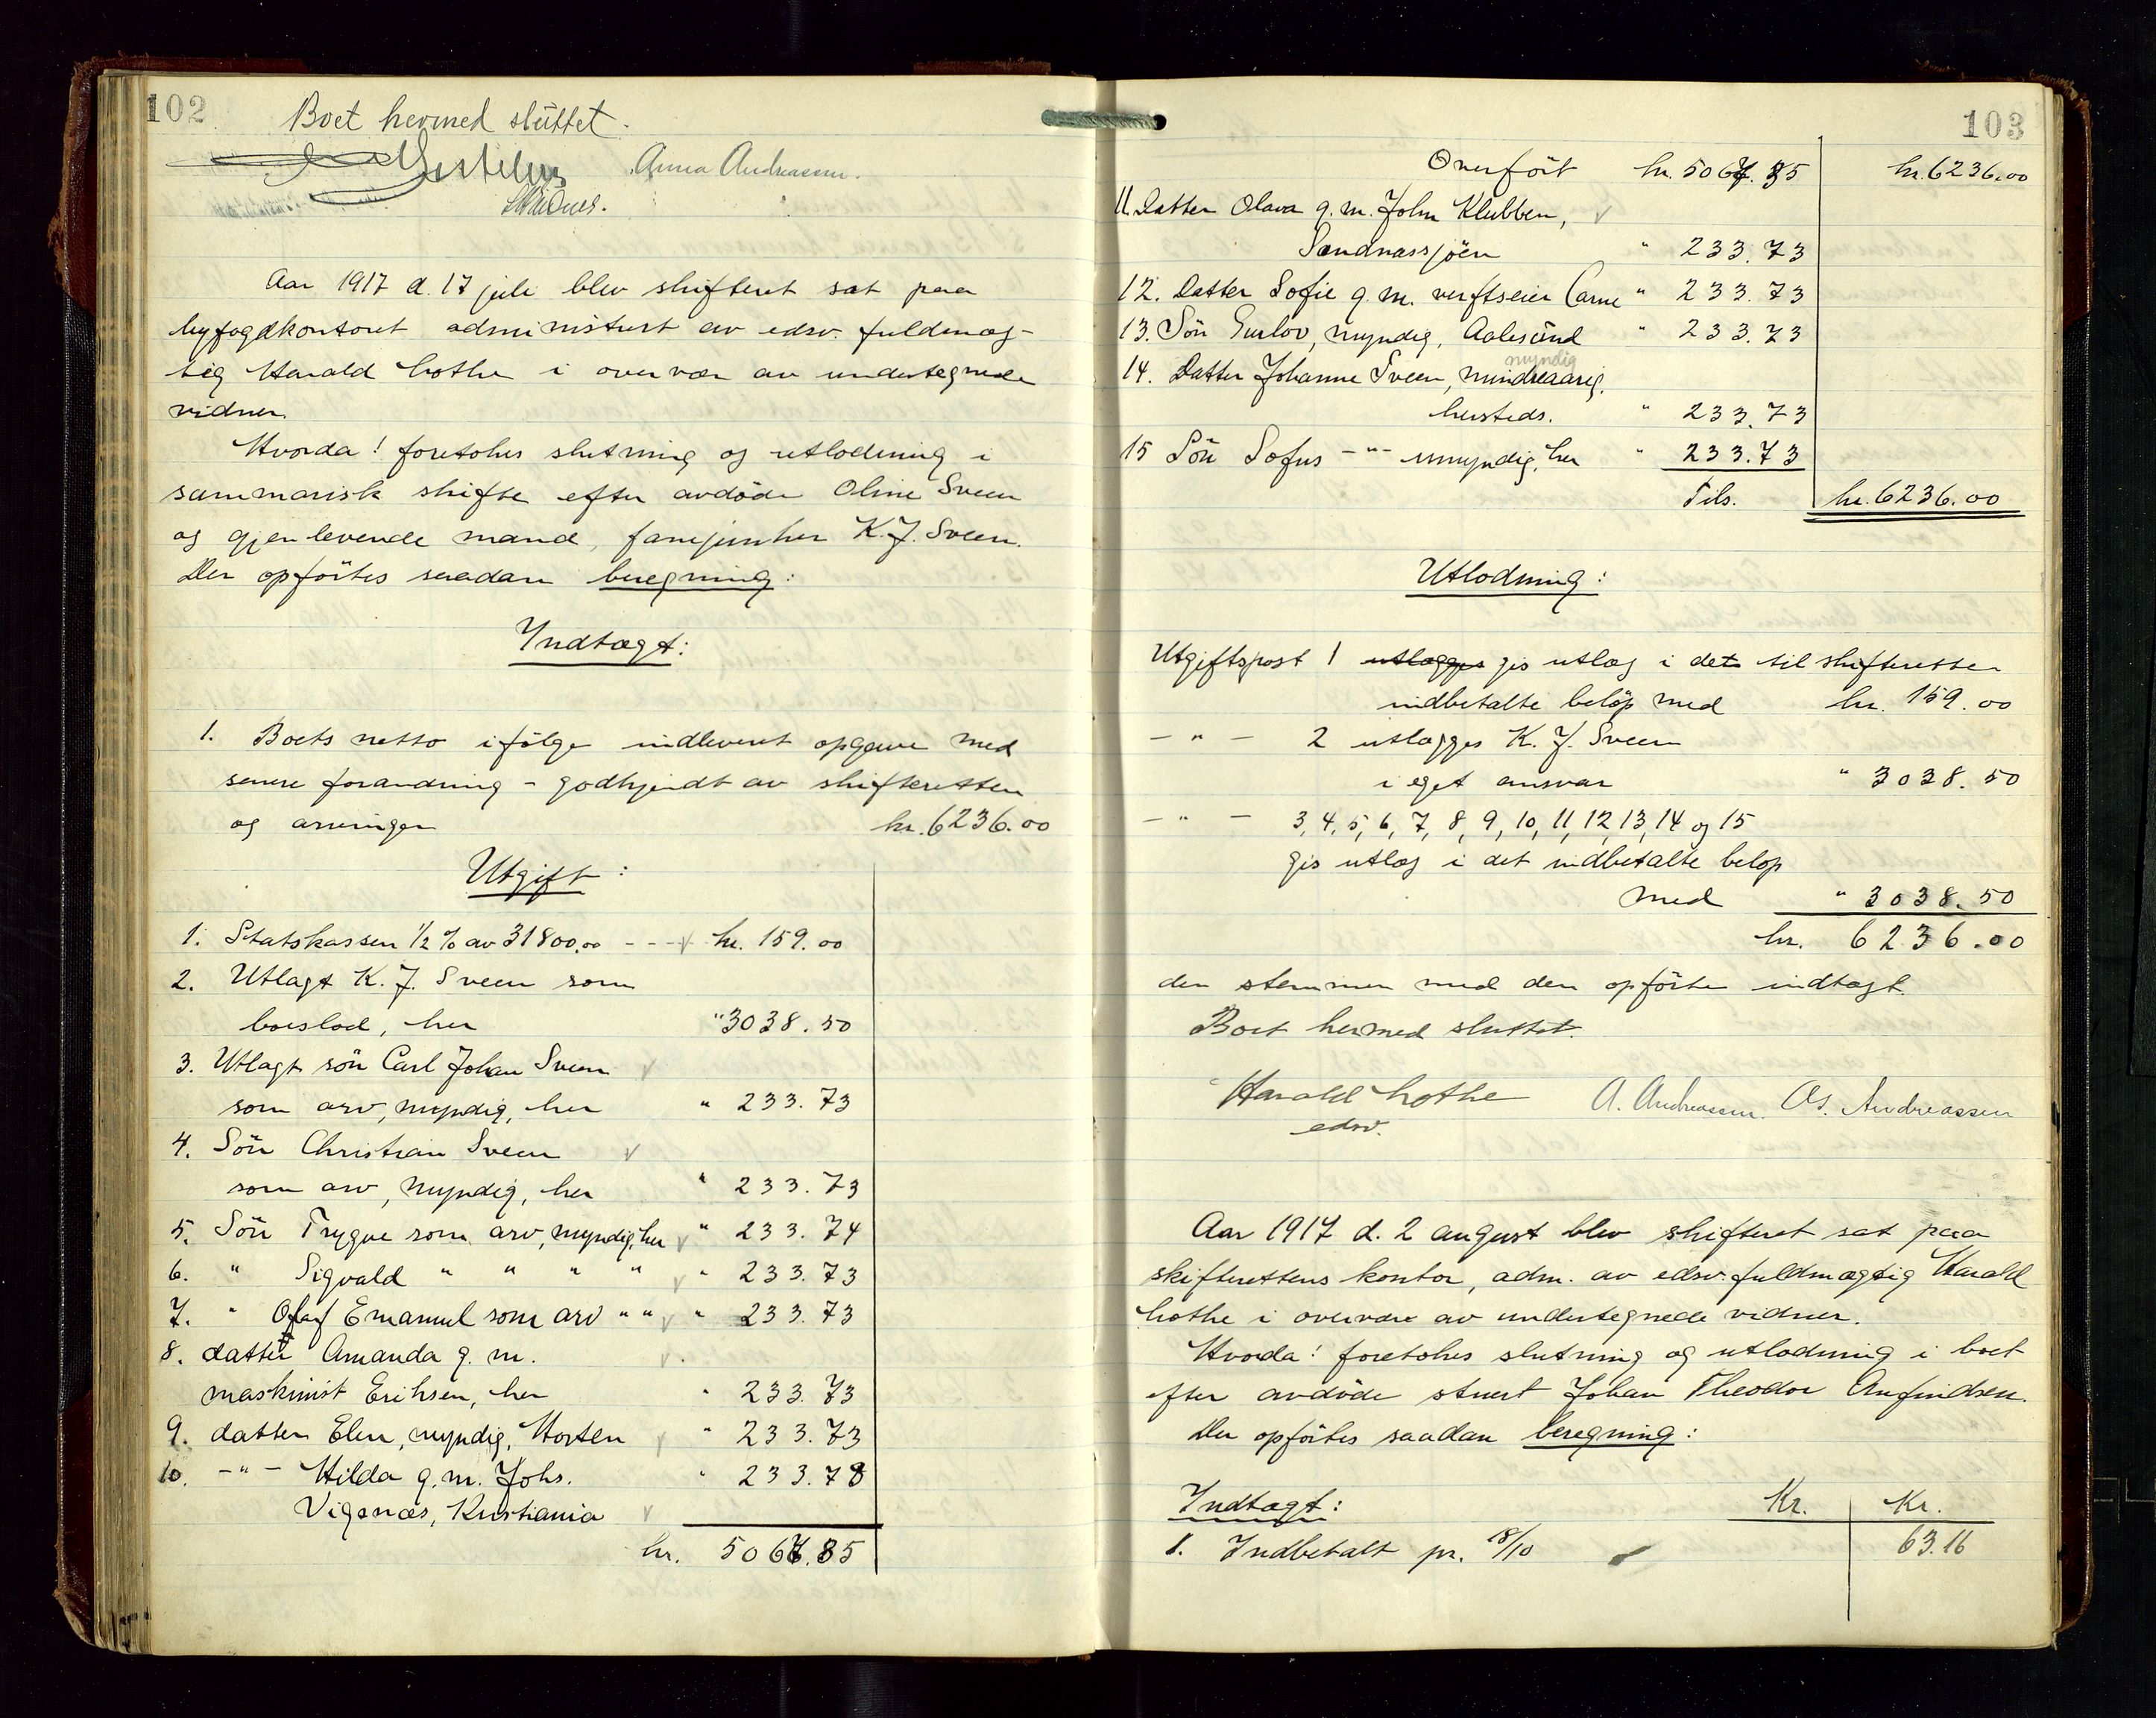 102
Boet hermed sluttet.
Anna Andreassen.
Aar 1917 d. 17 juli blev skifteret sat paa
byfogdkontoret administrert av edsv. fuldmæg-
tig Harald Lothe i overvær av undertegnede
vidner.
Hvorda! foretokes slutning og utlodning i
summarisk skifte efter avdöde Oline Sveen
og gjenlevende mand, fanejunker K. J. Sveen.
Der opförtes saadan beregning:
Indtægt:
1. Boets netto ifölge indleveret opgave med
senere forandring - godkjendt av skifteretten
og arvinger kr. 6236.00
Utgift:
1. Statskassen 1/2 % av 31800.00 - - - kr. 159.00
2. Utlagt K. J. Sveen som
boeslod, her " 3038.50
3. Utlagt sön Carl Johan Sveen
som arv, myndig, her " 233.73
4. Sön Christian Sveen
som arv, myndig, her " 233.73
5. Sön Trygve som arv, myndig, her " 233.74
6. " Sigvald " " " " " 233.73
7. " Olaf Emanuel som arv " " " 233.73
8. datter Amanda g. m.
maskinist Eriksen, her " 233.73
9. datter Elen, myndig, Horten " 233.73
10. -"- Hilda g. m. Johs.
Vigenæs, Kristiania " 233.73
kr. 5067.85
103
Overfört kr. 5067.85 kr. 6236.00
11. Datter Olava g. m. John Klubben,
Sandnessjöen " 233.73
12. Datter Sofie g. m. verftseier Carne " 233.73
13. Sön Gunlov, myndig, Aalesund " 233.73
myndig
14. Datter Johanne Sveen, mindreaarig,
hersteds. " 233.73
15 Sön Sofus -"- umyndig, her " 233.73
Tils. kr. 6236.00
Utlodning:
Utgiftspost 1 utlægges gis utlæg i det til skifteretten
indbetalte belöp med kr. 159.00
- " - 2 utlægges K. J. Sveen
i eget ansvar " 3038.50
- " - 3, 4, 5, 6, 7, 8, 9, 10, 11, 12, 13, 14 og 15
gis utlæg i det indbetalte belöp
med " 3038.50
kr. 6236.00
der stemmer med den opförte indtægt.
Boet hermed sluttet.
Harald Lothe A. Andreassen. Os. Andreassen
edsv.
Aar 1917 d. 2 august blev skifteret sat paa
skifterettens kontor, adm. av edsv. fuldmægtig Harald
Lothe i overvær av undertegnede vidner.
Hvorda! foretokes slutning og utlodning i boet
efter avdöde stuert Johan Theodor Anfindsen.
Der opförtes saadan beregning:
Indtægt: Kr. Kr.
1. Indbetalt pr. 18/10 63.16